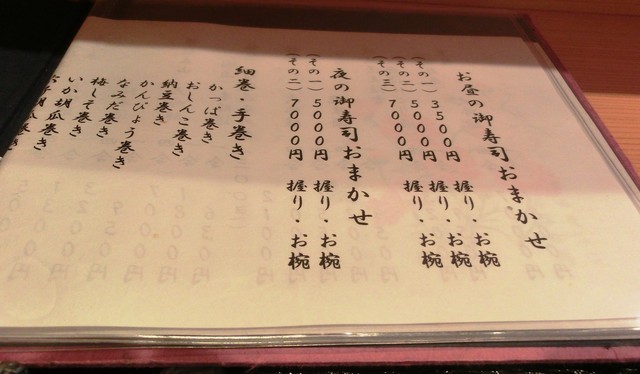 お昼の御寿司おまかせ
(その一) 3500円 握り・お椀
(その二) 5000円 握り・お椀
(その三) 7000円 握り・お椀
夜の御寿司おまかせ
(その一) 5000円 握り・お椀
(その二) 7000円 握り・お椀
細巻・手巻き
かっぱ巻き
おしんこ巻き
納豆巻き
かんぴょう巻き
なみだ巻き
梅しそ巻き
いか胡瓜巻き